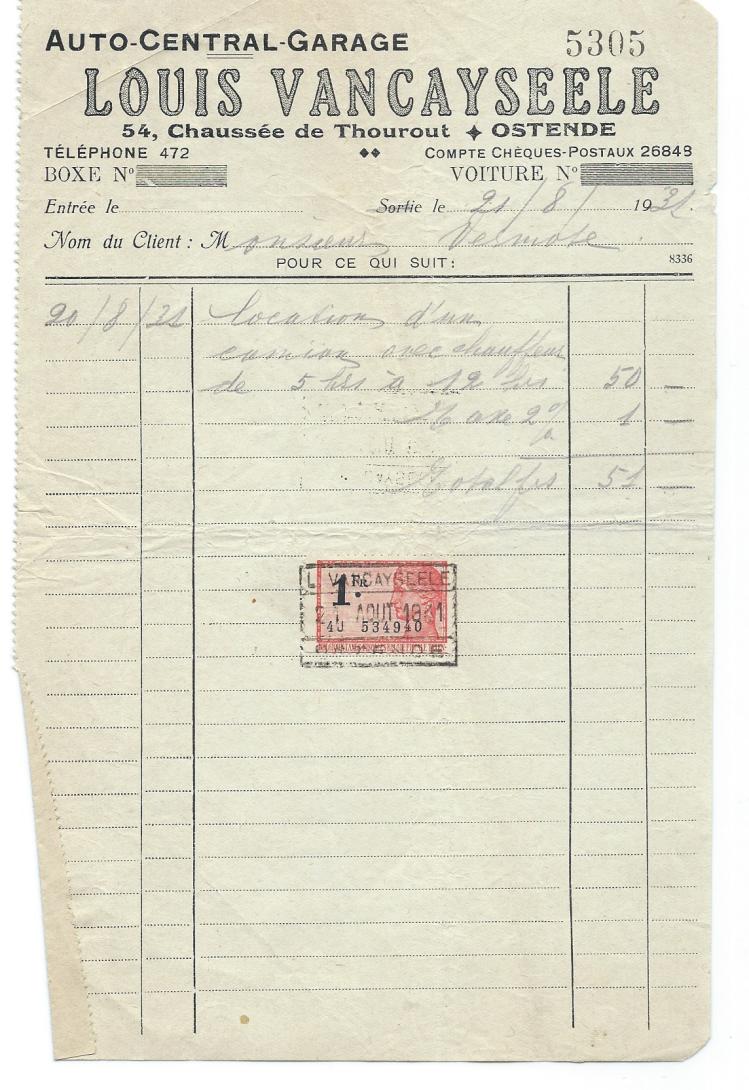 AUTO-CENTRAL-GARAGE 5305
LOUIS VANCAYSEELE
54, Chaussée de Thourout ✦ OSTENDE
TÉLÉPHONE 472 COMPTE CHÈQUES-POSTAUX 26843
BOXE Nº VOITURE Nº
Entrée le Sortie le 21/8/ 1931.
Nom du Client : Monsieur Vermote
POUR CE QUI SUIT: 8336
20/8/31 location d'un
camion avec chauffeur
de 5 hrs à 12 hrs 50 —
Taxe 2% 1 —
Total frs 51 —
1 FR.
L. VANCAYSEELE
21 AOUT 1931
40 534940